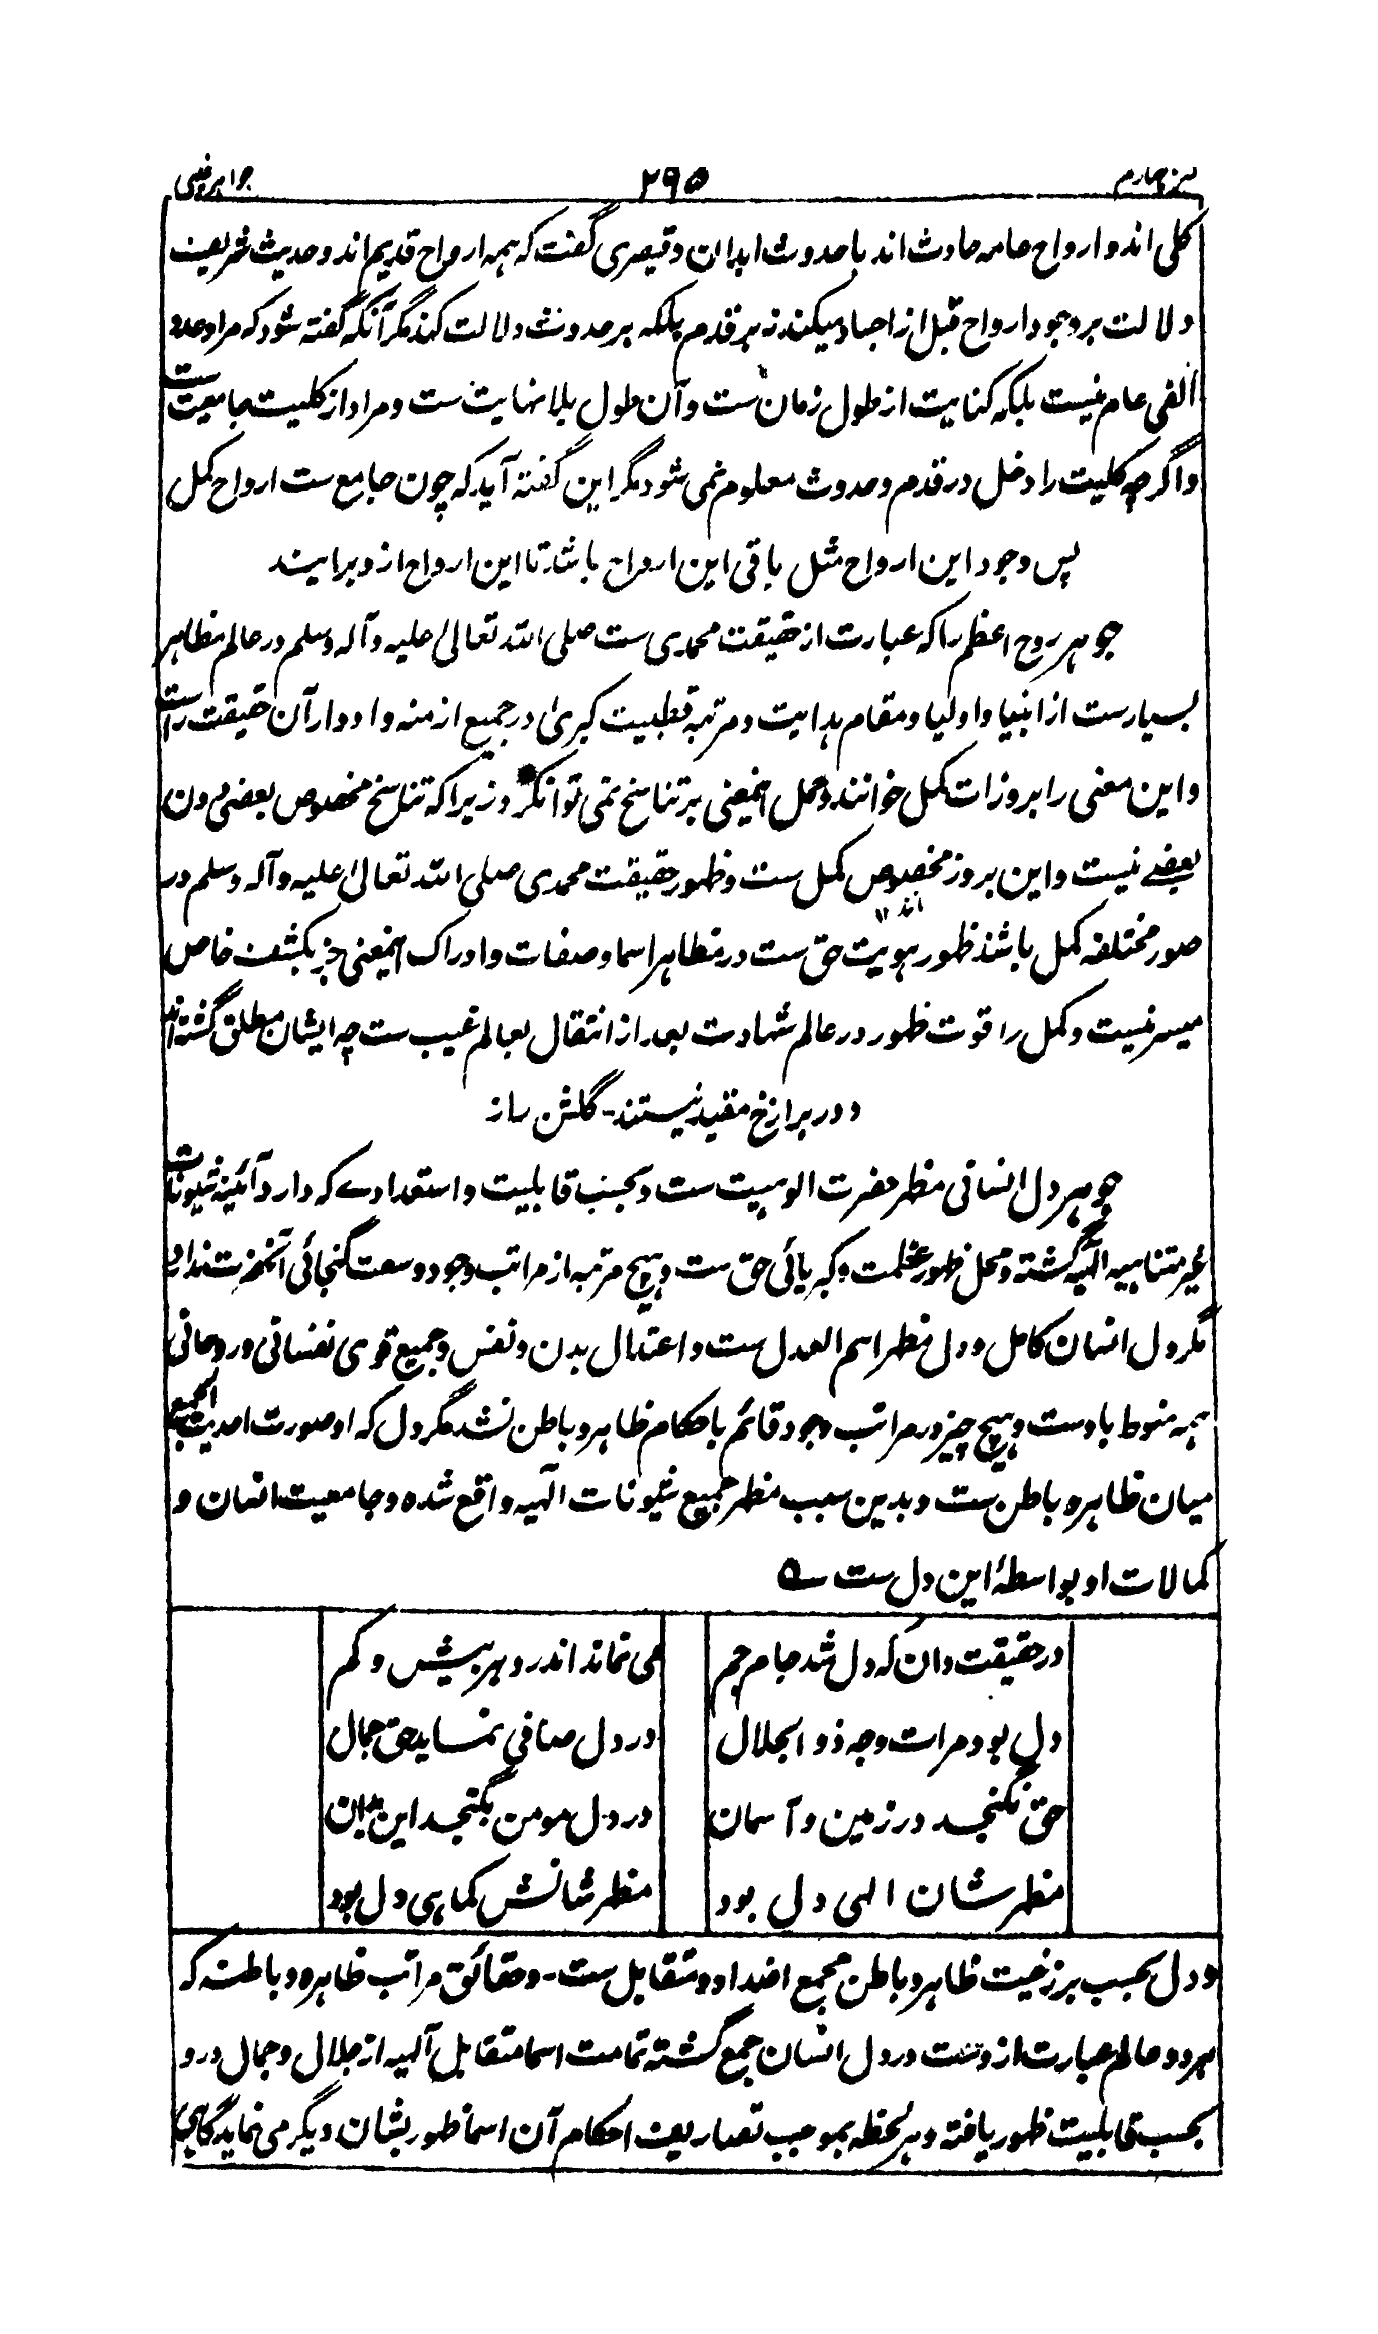 کنز چهارم ۲۹۵ جواهر غیبی
کلی اند و ارواح عامه حادث اند با حدوث ابدان و قیصری گفت که همه ارواح قدیم اند و حدیث شریف
دلالت بر وجود ارواح قبل از اجساد میکند نه بر قدم بلکه بر حدوث دلالت کند مگر آنکه گفته شود که مراد عدد
الفی عام نیست بلکه کنایت از طول زمان ست و آن طول بلا نهایت ست و مراد از کلیت جامعیت ست
و اگرچه کلیت را دخل در قدم و حدوث معلوم نمی شود مگر این گفته آید که چون جامع ست ارواح کمل
پس وجود این ارواح مثل باقی این ارواح باشد تا این ارواح ازو برایند
جوهر روح اعظم را که عبارت از حقیقت محمدی ست صلی الله تعالی علیه و آله وسلم در عالم مظاهر
بسیارست از انبیا و اولیا و مقام هدایت و مرتبه قطبیت کبریٰ در جمیع ازمنه و ادوار آن حقیقت راست
و این معنی را بروزات کمل خوانند و حمل اینمعنی بر تناسخ نمی توانکرد زیرا که تناسخ مخصوص بعضی دون
بعضے نیست و این بروز مخصوص کمل ست و ظهور حقیقت محمدی صلی الله تعالیٰ علیه و آله وسلم در
صور مختلفه کمل باشد ظهور هویت حق ست در مظاهر اسما و صفات و ادراک اینمعنی جز بکشف خاص
میسر نیست و کمل را قوت ظهور در عالم شهادت بعد از انتقال بعالم غیب ست چه ایشان مطلق گشته اند
و در برازخ مقید نیستند - گلشن راز
جوهر دل انسانی مظهر حضرت الوهیت ست و بحسب قابلیت و استعدادے که دارد آئینه شیونات
غیر متناهیه الٰهیه گشته و محل ظهور عظمت و کبریائی حق ست و هیچ مرتبه از مراتب وجود وسعت گنجائی آنحضرت ندارد
مگر دل انسان کامل و دل مظهر اسم العدل ست و اعتدال بدن و نفس و جمیع قوی نفسانی و روحانی
همه منوط باوست و هیچ چیز در مراتب وجود قائم باحکام ظاهر و باطن نشد مگر دل که او صورت احدیت الجمع
میان ظاهر و باطن ست و بدین سبب مظهر جمیع شیونات الٰهیه واقع شده و جامعیت انسان و
کمالات او بواسطهٔ این دل ست ؎
در حقیقت دان که دل شد جام جم می نماند اندرو هر بیش و کم
دل بود مرات وجه ذو الجلال در دل صافی نماید حق جمال
حق نگنجد در زمین و آسمان در دل مومن بگنجد این بدان
مظهر شان الهی دل بود مظهر شانش کماهی دل بود
و دل بحسب برزخیت ظاهر و باطن مجمع اضداد و متقابل ست - و حقائق مراتب ظاهره و باطنه که
هر دو عالم عبارت ازوست در دل انسان جمع گشته تمامت اسما متقابل آلهیه از جلال و جمال درو
بحسب قابلیت ظهور یافته و هر لحظه بموجب تصاریف احکام آن اسما ظهور بشان دیگر می نماید گاهی